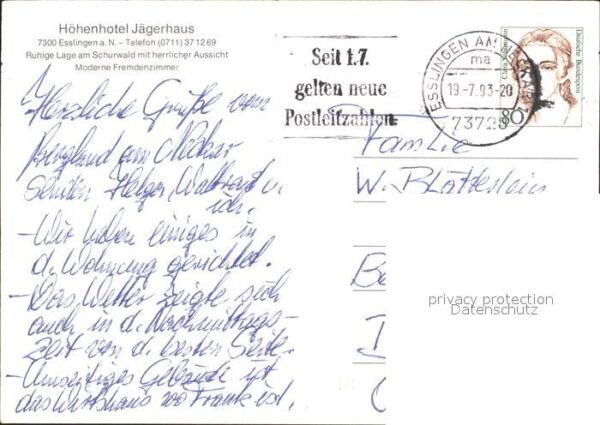 Höhenhotel Jägerhaus
7300 Esslingen a. N. – Telefon (0711) 37 12 69
Ruhige Lage am Schurwald mit herrlicher Aussicht
Moderne Fremdenzimmer
Herzliche Grüße vom
Bergland am Neckar
senden Helga, Waltraut u.
ich.
- Wir haben einiges in
d. Wohnung gerichtet.
- Das Wetter zeigte sich
auch in d. Nachmittags-
zeit von d. besten Seite.
- Umseitiges Gebäude ist
das Wirtshaus wo Frank ist.
Seit 1.7.
gelten neue
Postleitzahlen
ESSLINGEN AM NECKAR
ma
19.-7.93-20
73728
80
Deutsche Bundespost
Familie
W. Blättestein
privacy protection
Datenschutz